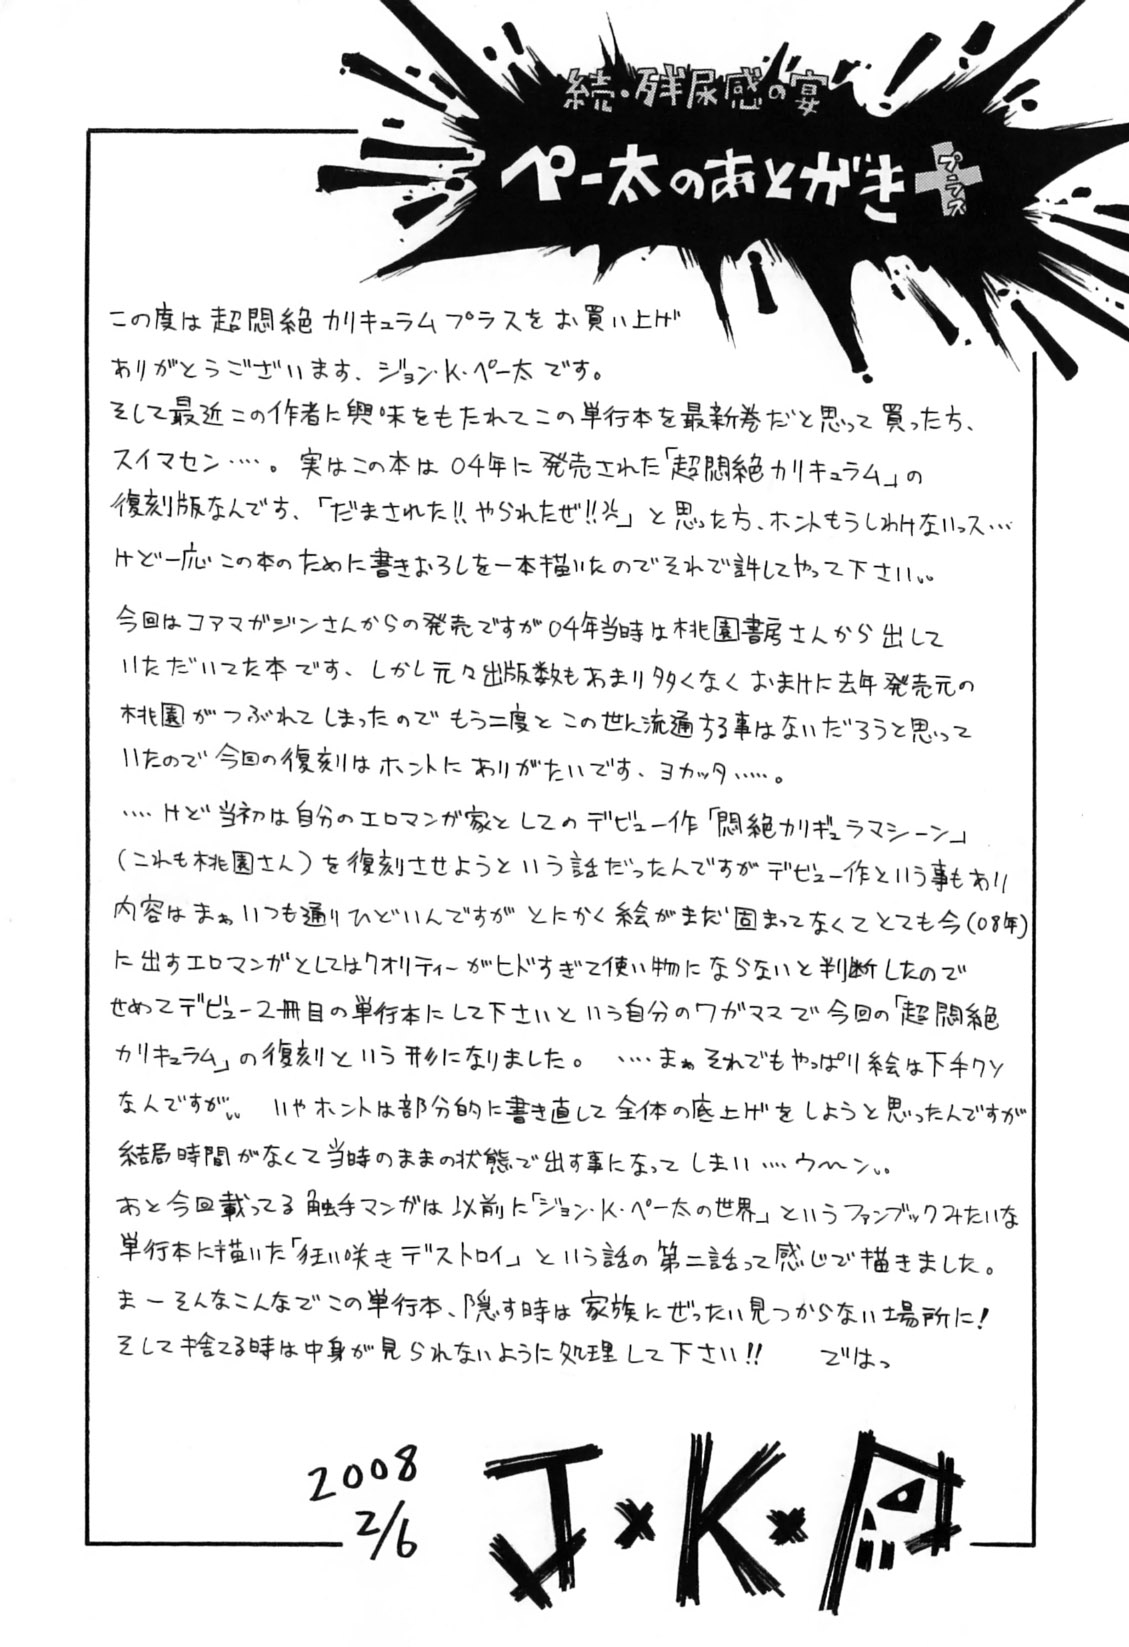 続・残尿感の宴
ペー太のあとがき
プラス
この度は超悶絶カリキュラムプラスをお買い上げ
ありがとうございます、ジョン・K・ペー太です。
そして最近この作者に興味をもたれてこの単行本を最新巻だと思って買った方、
スイマセン‥‥。実はこの本は04年に発売された「超悶絶カリキュラム」の
復刻版なんです、「だまされた!!やられたぜ!!」と思った方、ホントもうしわけないっス…
けど一応この本のために書きおろしを一本描いたのでそれで許してやって下さい、、
今回はコアマガジンさんからの発売ですが04年当時は桃園書房さんから出して
いただいてた本です、しかし元々出版数もあまり多くなくおまけに去年発売元の
桃園がつぶれてしまったのでもう二度とこの世に流通する事はないだろうと思って
いたので今回の復刻はホントにありがたいです、ヨカッタ‥‥。
‥‥けど当初は自分のエロマンガ家としてのデビュー作「悶絶カリギュラマシーン」
(これも桃園さん)を復刻させようという話だったんですがデビュー作という事もあり
内容はまぁいつも通りひどいんですがとにかく絵がまだ固まってなくてとても今(08年)
に出すエロマンガとしてはクオリティーがヒドすぎて使い物にならないと判断したので
せめてデビュー2冊目の単行本にして下さいという自分のワガママで今回の「超悶絶
カリキュラム」の復刻という形になりました。‥‥まぁそれでもやっぱり絵は下手クソ
なんですが、、 いやホントは部分的に書き直して全体の底上げをしようと思ったんですが
結局時間がなくて当時のままの状態で出す事になってしまい‥‥ウ〜ン、、
あと今回載ってる触手マンガは以前に「ジョン・K・ペー太の世界」というファンブックみたいな
単行本に描いた「狂い咲きデストロイ」という話の第二話って感じで描きました。
まーそんなこんなでこの単行本、隠す時は家族にぜったい見つからない場所に!
そして捨てる時は中身が見られないように処理して下さい!! ではっ
2008
2/6
J×K×P